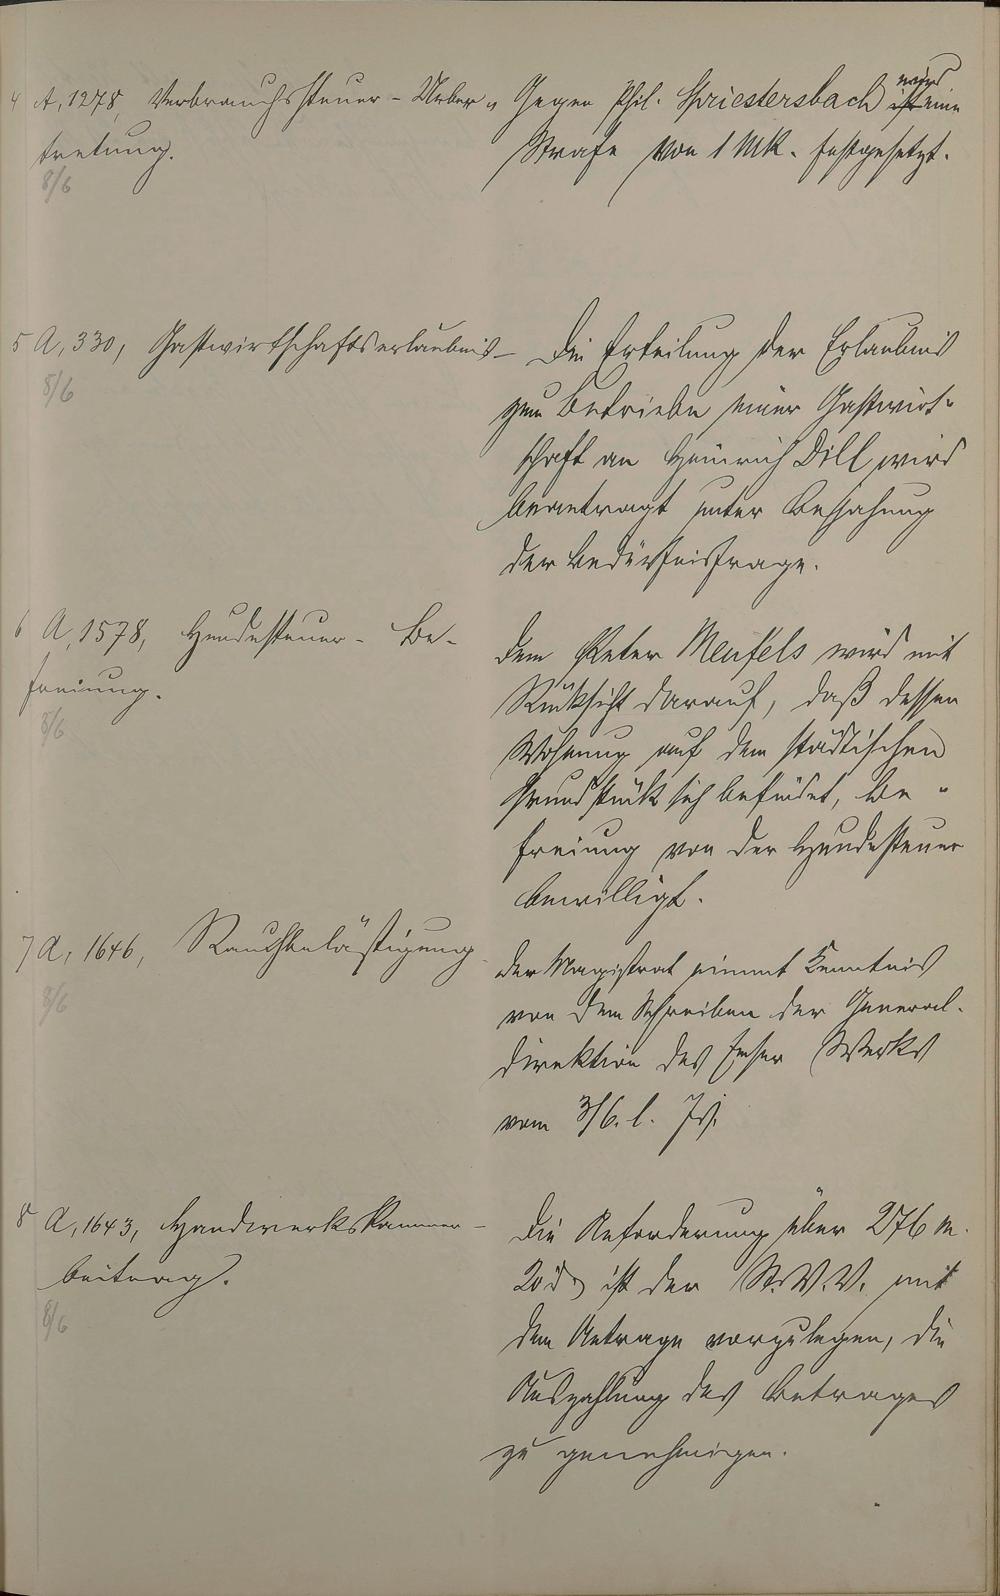 4 A, 1278, Verbrauchssteuer-Ueber-
tretung.
8/6
Gegen Phil. Spriestersbach ist wird eine
Strafe von 1 Mk. festgesetzt.
5 A, 330, Gastwirtschaftserlaubnis-
8/6
Die Erteilung der Erlaubnis
zum Betriebe einer Gastwirt-
schaft an Heinrich Dill wird
beantragt unter Bejahung
der Bedürfnisfrage.
6 A, 1578, Hundesteuer-Be-
freiung.
8/6
Dem Peter Meufels wird mit
Rücksicht darauf, daß dessen
Wohnung auf dem städtischen
Grundstück sich befindet, Be-
freiung von der Hundesteuer
bewilligt.
7 A, 1646, Rauchbelästigung
8/6
Der Magistrat nimmt Kenntnis
von dem Schreiben der General-
direktion des Emser Werks
vom 3/6. l. Js.
8 A, 1643, Handwerkskammer-
beitrag.
8/6
Die Anforderung über 276 M.
20 d ist der St.V.V. mit
dem Antrage vorzulegen, die
Auszahlung des Betrages
zu genehmigen.